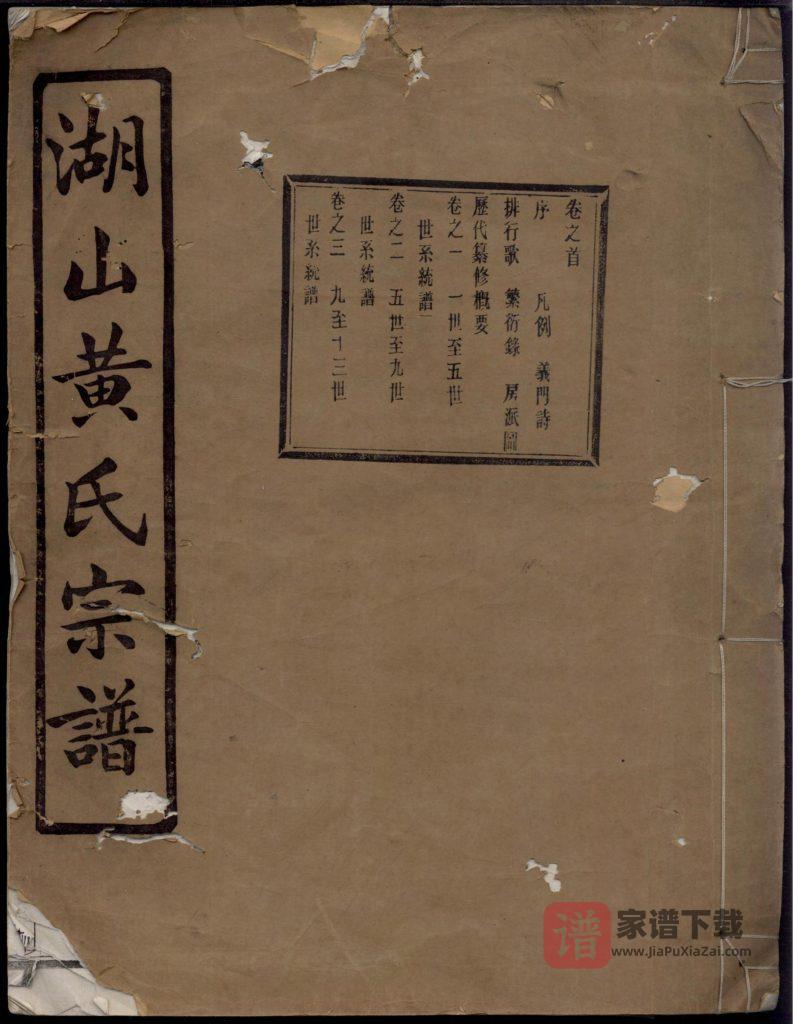 湖山黃氏宗譜
卷之首
序 凡例 義門詩
排行歌 繁衍錄 房派圖
歷代纂修概要
卷之一 一世至五世
世系統譜
卷之二 五世至九世
世系統譜
卷之三 九至十三世
世系統譜
谱
家谱下载
www.JiaPuXiaZai.com